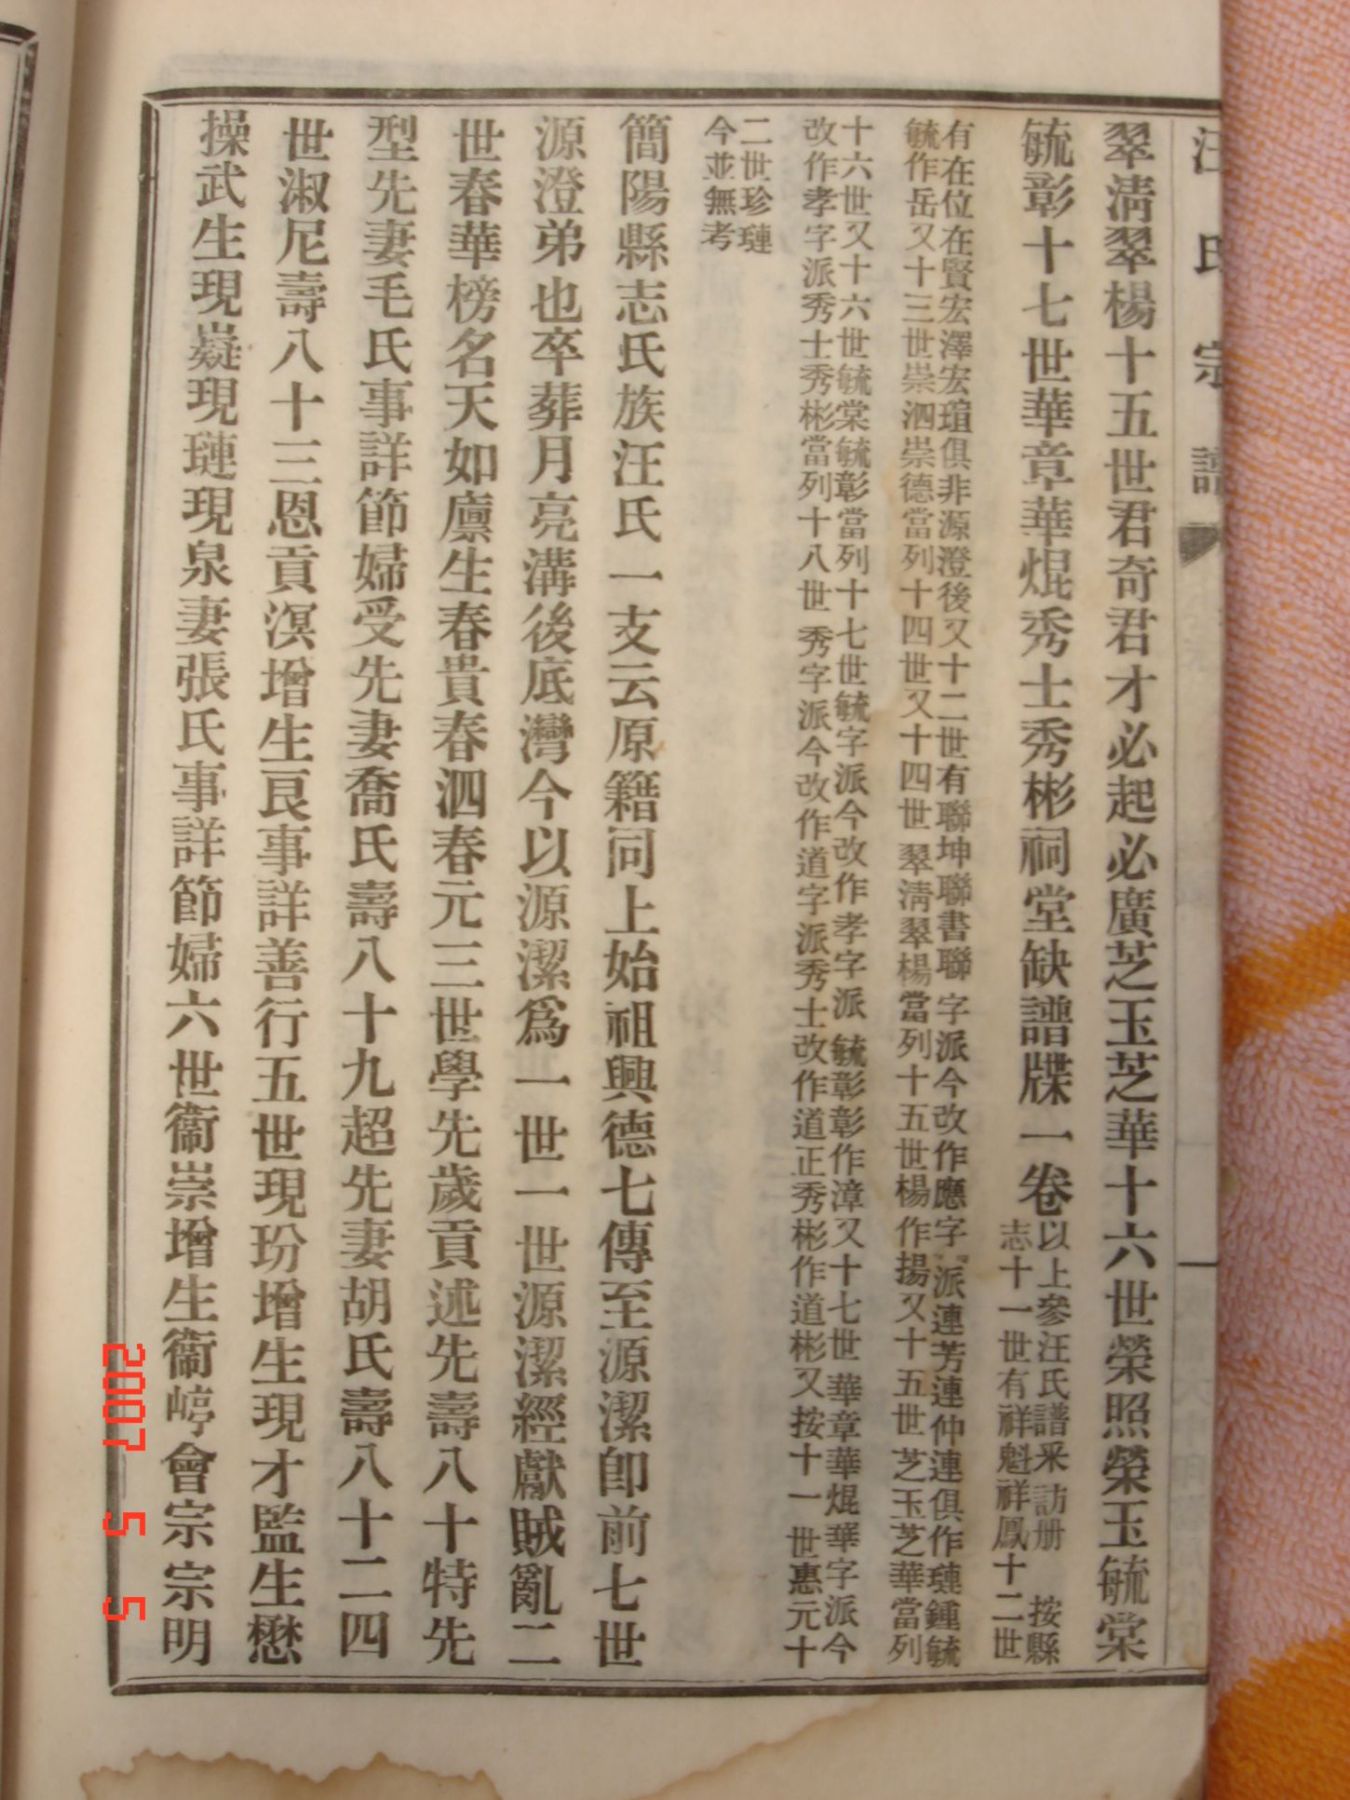 汪氏宗譜
翠淸翠楊十五世君奇君才必起必廣芝玉芝華十六世榮照榮玉毓棠
毓彰十七世華章華焜秀士秀彬祠堂缺譜牒一卷
以上參汪氏譜釆訪册 按縣
志十一世有祥魁祥鳳十二世
有在位在賢宏澤宏瑄俱非源澄後又十二世有聯坤聯書聯 字派今改作應字派連芳連仲連俱作璉鍾毓
毓作岳又十三世崇泗崇德當列十四世又十四世翠淸翠楊當列十五世楊作揚又十五世芝玉芝華當列
十六世又十六世毓棠毓彰當列十七世毓字派今改作孝字派 毓彰彰作漳又十七世 華章華焜華字派今
改作孝字派秀士秀彬當列十八世 秀字派今改作道字派秀士改作道正秀彬作道彬又按十一世惠元十
二世珍璉
今並無考
簡陽縣志氏族汪氏一支云原籍同上始祖興德七傳至源潔卽前七世
源澄弟也卒葬月亮溝後底灣今以源潔爲一世一世源潔經獻賊亂二
世春華榜名天如廪生春貴春泗春元三世學先歲貢述先壽八十特先
型先妻毛氏事詳節婦受先妻喬氏壽八十九超先妻胡氏壽八十二四
世淑尼壽八十三恩貢溟增生艮事詳善行五世現玢增生現才監生懋
操武生現嶷現璉現泉妻張氏事詳節婦六世衞崇增生衞崞會宗宗明
2007 5 5